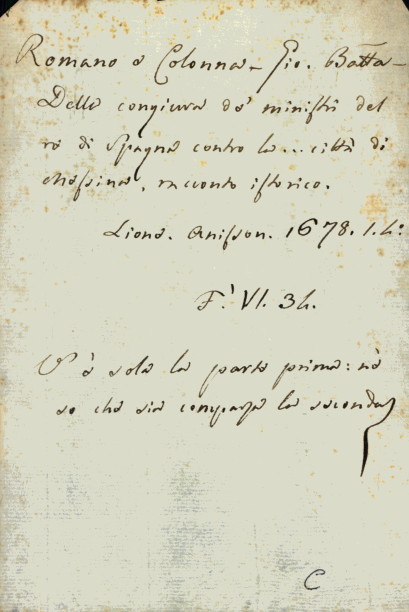 Romano e Colonna - Gio. Batta -
Della congiura de' ministri del
re di Spagna contro la ... città di
Messina, racconto istorico.
Lione. Anisson. 1678. 1. 4:
F. VI. 34.
V'è sola la parte prima: nè
so che sia comparsa la seconda
C